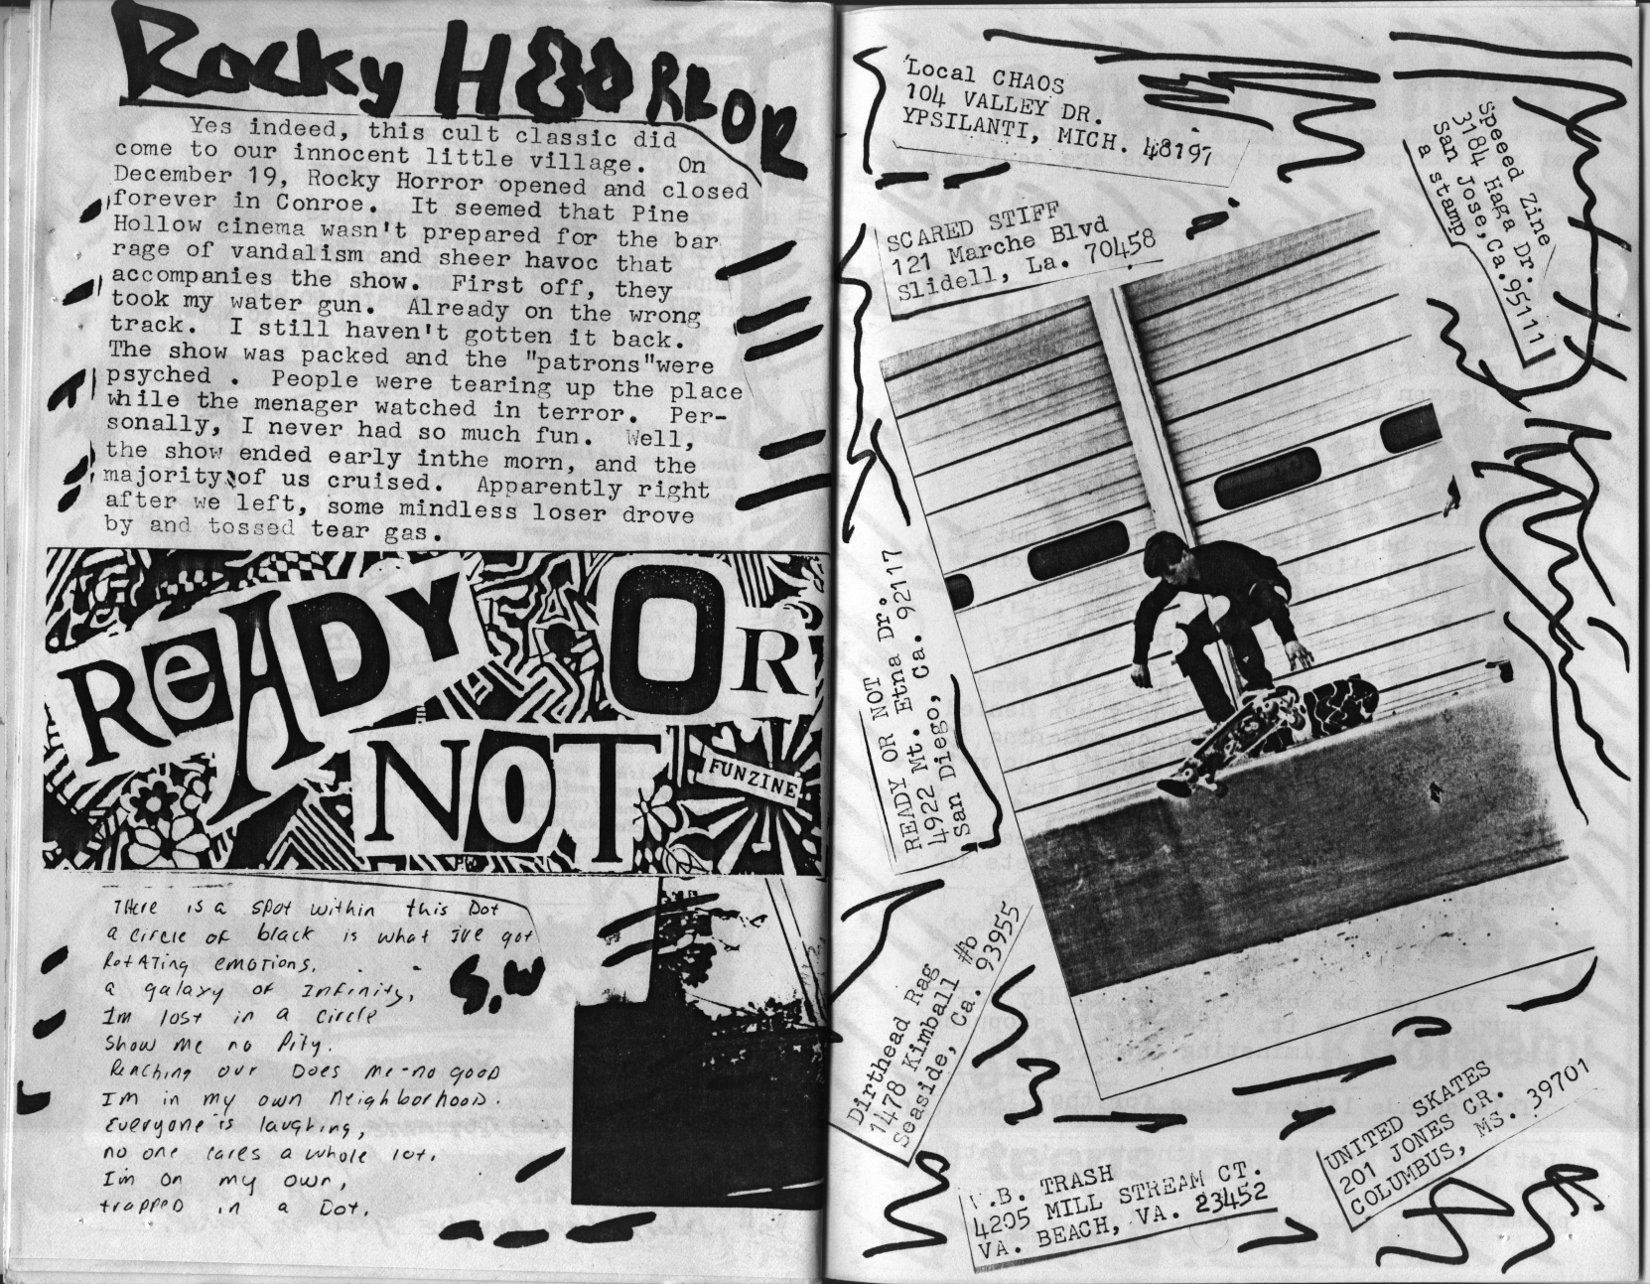 Rocky HORROR
Yes indeed, this cult classic did
come to our innocent little village. On
December 19, Rocky Horror opened and closed
forever in Conroe. It seemed that Pine
Hollow cinema wasn't prepared for the bar
rage of vandalism and sheer havoc that
accompanies the show. First off, they
took my water gun. Already on the wrong
track. I still haven't gotten it back.
The show was packed and the "patrons"were
psyched . People were tearing up the place
while the menager watched in terror. Per-
sonally, I never had so much fun. Well,
the show ended early inthe morn, and the
majority of us cruised. Apparently right
after we left, some mindless loser drove
by and tossed tear gas.
READY OR
NOT
FUNZINE
THere is a spot within this Dot
a circle of black is what I've got
RotATing emotions.
a galaxy of Infinity,
Im lost in a circle
Show me no Pity.
Reaching out Does me-no good
IM in my own Neighborhood.
Everyone is laughing,
no one cares a whole lot.
I'm on my own,
trapped in a Dot.
S.W
Local CHAOS
104 VALLEY DR.
YPSILANTI, MICH. 48197
Speeed Zine
3184 Haga Dr.
San Jose,Ca.95111
a stamp
SCARED STIFF
121 Marche Blvd
Slidell, La. 70458
READY OR NOT
4922 Mt. Etna Dr.
San Diego, Ca. 92117
Dirthead Rag
1478 Kimball #b
Seaside, Ca. 93955
V.B. TRASH
4205 MILL STREAM CT.
VA. BEACH, VA. 23452
UNITED SKATES
201 JONES CR.
COLUMBUS, MS. 39701